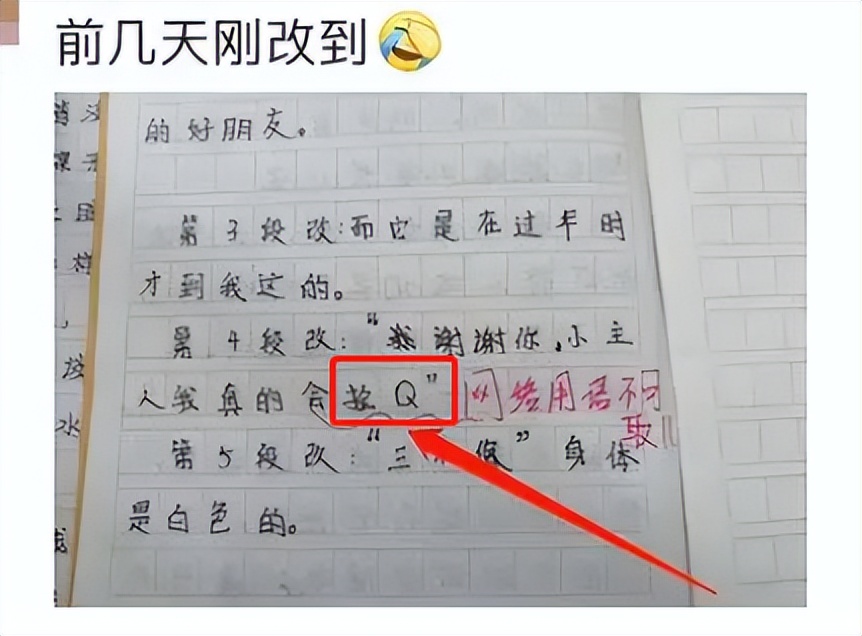 前几天刚改到
的好朋友。
第3段改:而它是在过年时
才到我这的。
第4段改:“谢谢你,小主
人我真的会拴Q” 网络用语不可
取!!
第5段改:“三 低” 身体
是白色的。